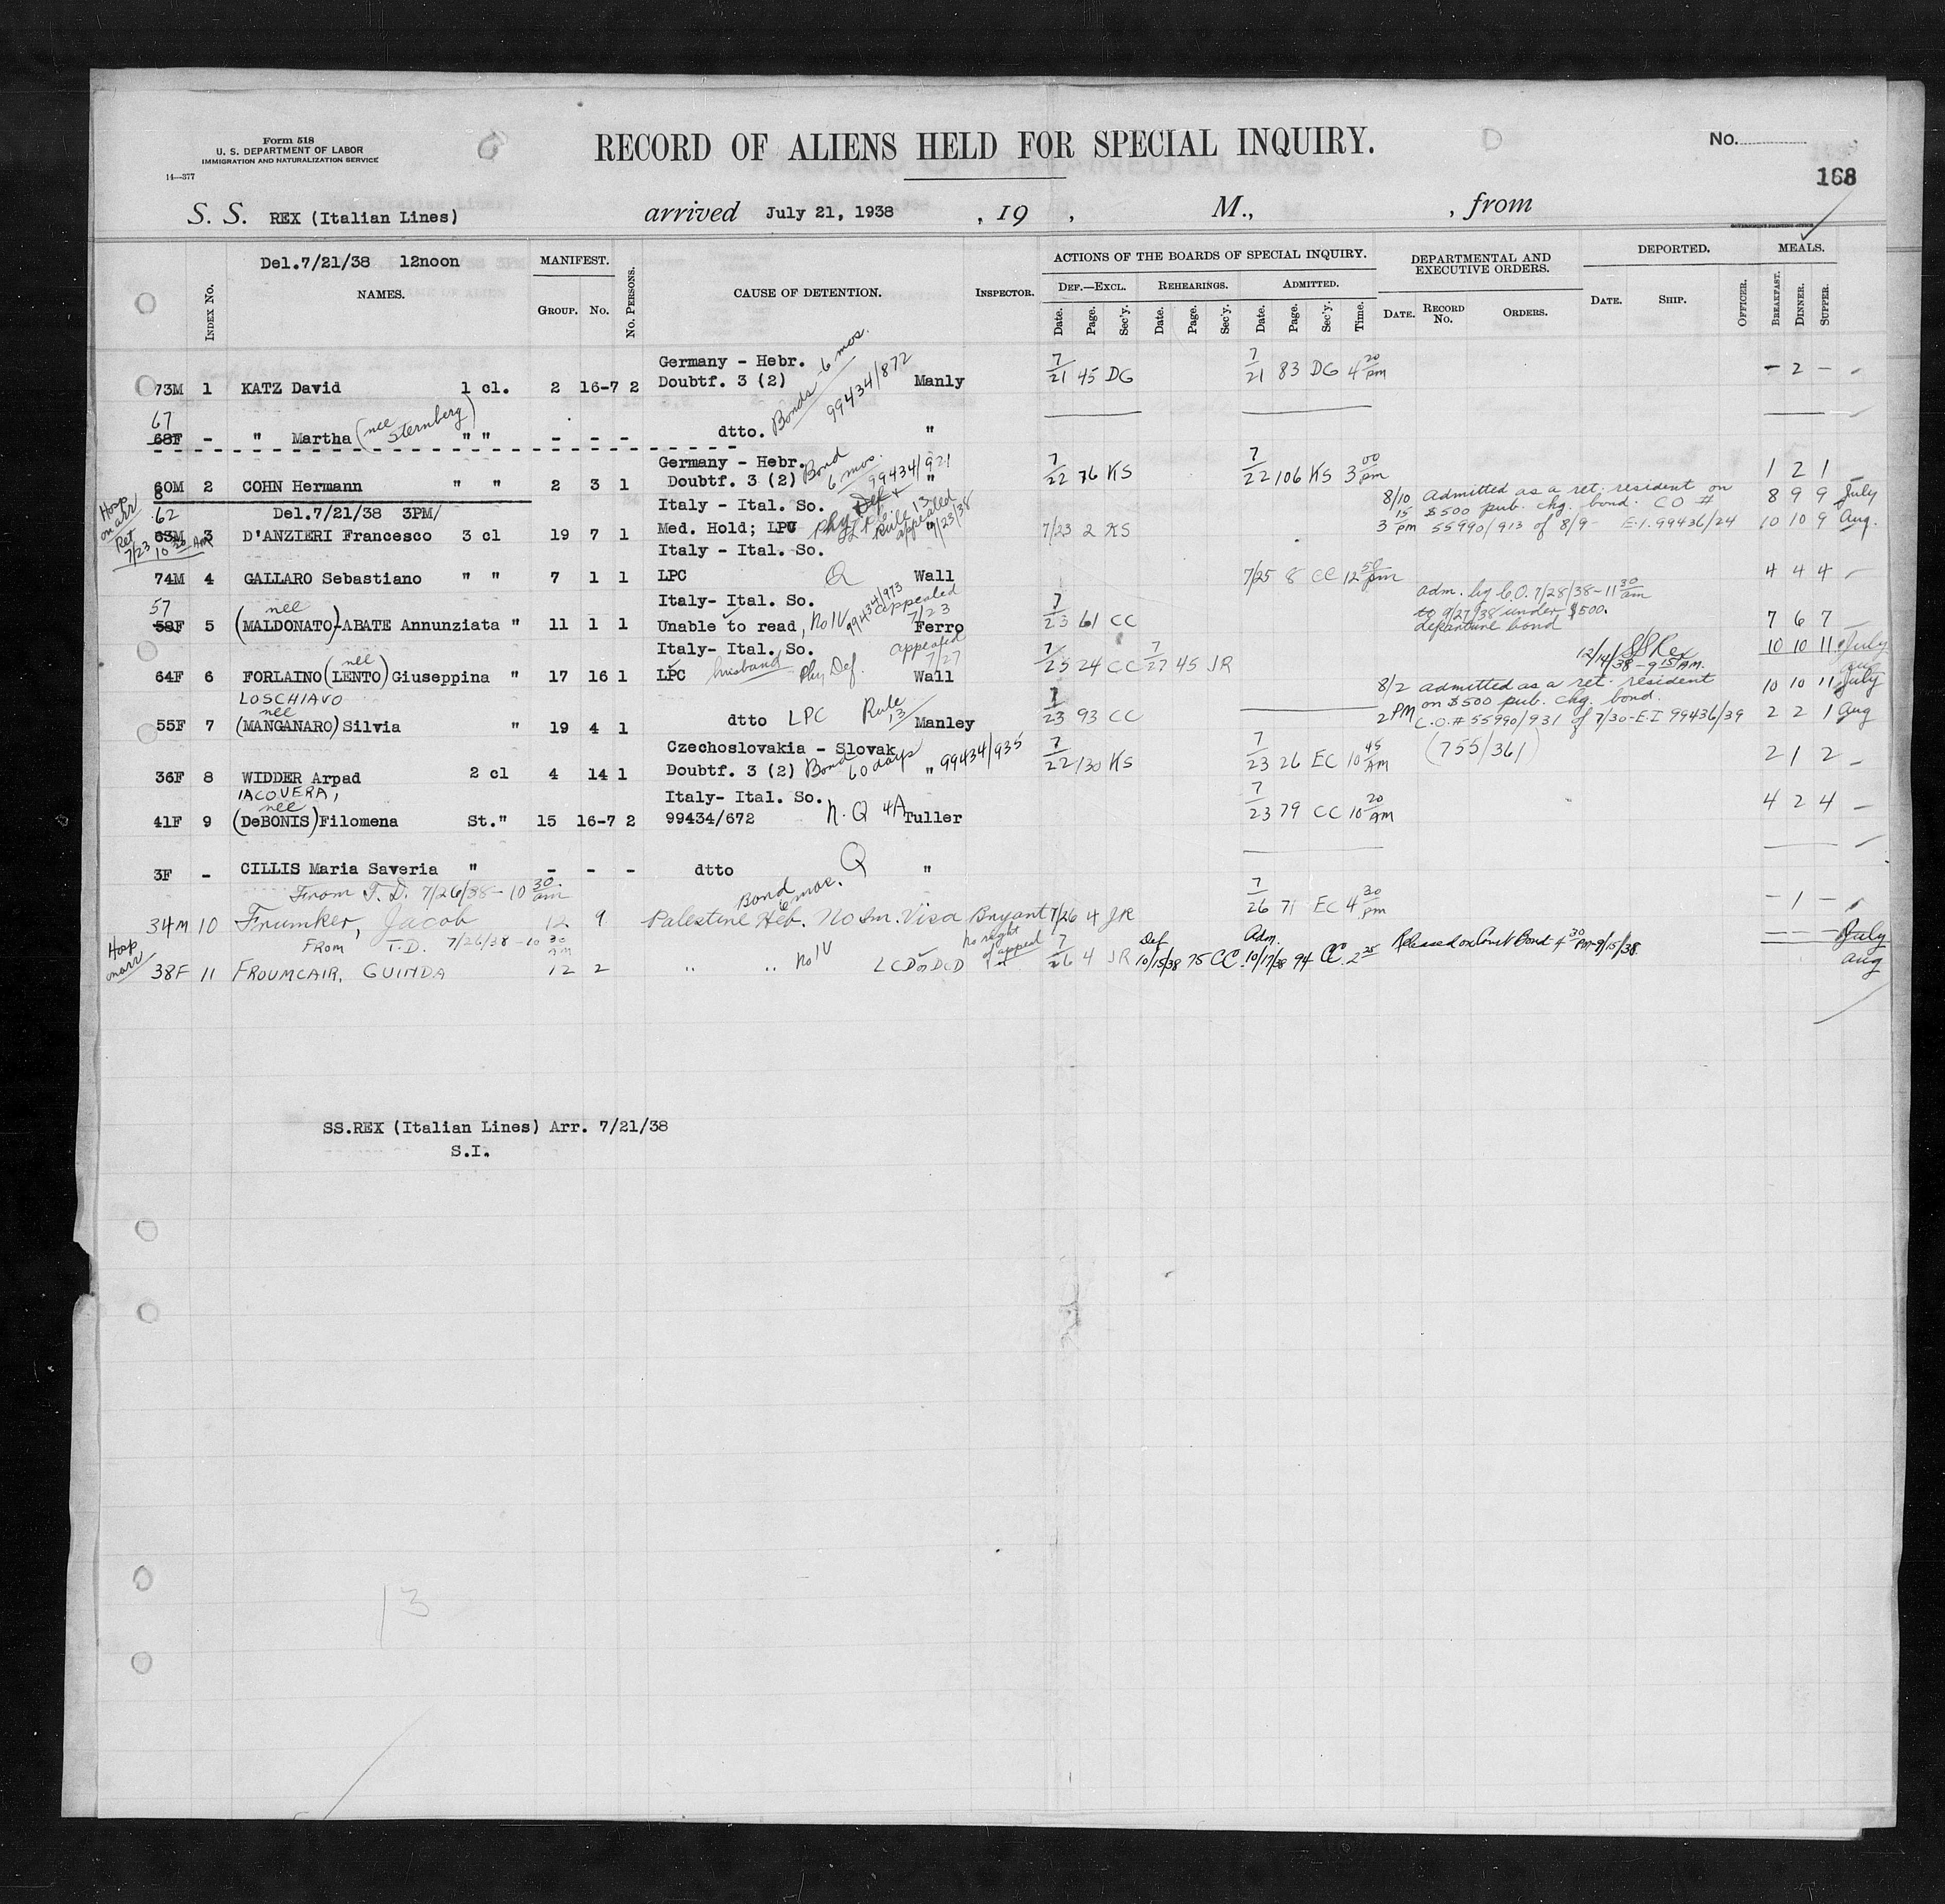 Form 518
U. S. DEPARTMENT OF LABOR
IMMIGRATION AND NATURALIZATION SERVICE
14—377
RECORD OF ALIENS HELD FOR SPECIAL INQUIRY.
No.
168
S. S. REX (Italian Lines) arrived July 21, 1938 , 19 , M., , from
GOVERNMENT PRINTING OFFICE
Del.7/21/38 12noon
INDEX No. NAMES. MANIFEST. GROUP. No. No. PERSONS. CAUSE OF DETENTION. INSPECTOR.
ACTIONS OF THE BOARDS OF SPECIAL INQUIRY. DEPARTMENTAL AND EXECUTIVE ORDERS. DEPORTED. MEALS.
DEF.—EXCL. REHEARINGS. ADMITTED.
Date. Page. Sec'y. Date. Page. Sec'y. Date. Page. Sec'y. Time. DATE. RECORD No. ORDERS. DATE. SHIP. OFFICER. BREAKFAST. DINNER. SUPPER.
Germany - Hebr. 6 mos.
73M 1 KATZ David 1 cl. 2 16-7 2 Doubtf. 3 (2) Bonds 99434/872 Manly 7/21 45 DG 7/21 83 DG 4 20 pm - 2 -
67
68F - " Martha (nee Sternberg) " " - - - dtto. "
Germany - Hebr. Bond 6 mos.
60M 2 COHN Hermann " " 2 3 1 Doubtf. 3 (2) 99434/921 " 7/22 76 KS 7/22 106 KS 3 00 pm 1 2 1
Hosp on arr Ret 7/23 10 AM
62 Del.7/21/38 3PM/
Italy - Ital. So.
63M 3 D'ANZIERI Francesco 3 cl 19 7 1 Med. Hold; LPC Phy Def Rule 13 appealed 7/23/38 " 7/23 2 KS
8/10 Admitted as a ret. resident on 8 9 9 July
15 $500 pub. chg. bond. CO #
3 pm 55990/913 of 8/9 - E.I. 99436/24 10 10 9 Aug.
Italy - Ital. So.
74M 4 GALLARO Sebastiano " " 7 1 1 LPC Q Wall 7/25 8 CC 12 50 pm 4 4 4
57 nee
Italy- Ital. So. 99434/973 appealed 7/23
58F 5 (MALDONATO)-ABATE Annunziata " 11 1 1 Unable to read, No IV Ferro 7/23 61 CC
adm. by C.O. 7/28/38 - 11 30 am
to 9/27/38 under $500. 7 6 7
departure bond
Italy- Ital. So. appealed 7/27
64F 6 FORLAINO (nee LENTO) Giuseppina " 17 16 1 LPC husband Phy Def. Wall 7/25 24 CC 7/27 45 JR
12/14/38 - 9 15 AM. SS Rex 10 10 11 July
LOSCHIAVO
nee
55F 7 (MANGANARO) Silvia " 19 4 1 dtto LPC Rule 13 Manley 7/23 93 CC
8/2 admitted as a ret. resident 10 10 11 July
on $500 pub. chg. bond.
2PM C.O. # 55990/931 of 7/30 - E.I 99436/39 2 2 1 Aug
Czechoslovakia - Slovak
36F 8 WIDDER Arpad 2 cl 4 14 1 Doubtf. 3 (2) Bond 60 days " 99434/935 7/22 130 KS 7/23 26 EC 10 45 AM (755/361) 2 1 2
IACOVERA,
nee
Italy- Ital. So.
41F 9 (DeBONIS) Filomena St." 15 16-7 2 99434/672 N.Q 4A Tuller 7/23 79 CC 10 20 AM 4 2 4
3F - CILLIS Maria Saveria " - - - dtto Q "
From T.D. 7/26/38 - 10 30 am
Bond 6 mos.
34M 10 Frumker, Jacob 12 9 Palestine Heb. No Im. Visa Bryant 7/26 4 JR 7/26 71 EC 4 30 pm - 1 -
Hosp on arr
FROM T.D. 7/26/38 - 10 30 AM
38F 11 FROUMCAIR, GUINDA 12 2 " " No IV LCD or DCD no right of appeal 7/26 4 JR Def 10/15/38 75 CC Adm. 10/17/38 94 CC 2 25 Released on Court Bond 4 30 PM - 9/15/38. July
aug
SS.REX (Italian Lines) Arr. 7/21/38
S.I.
13